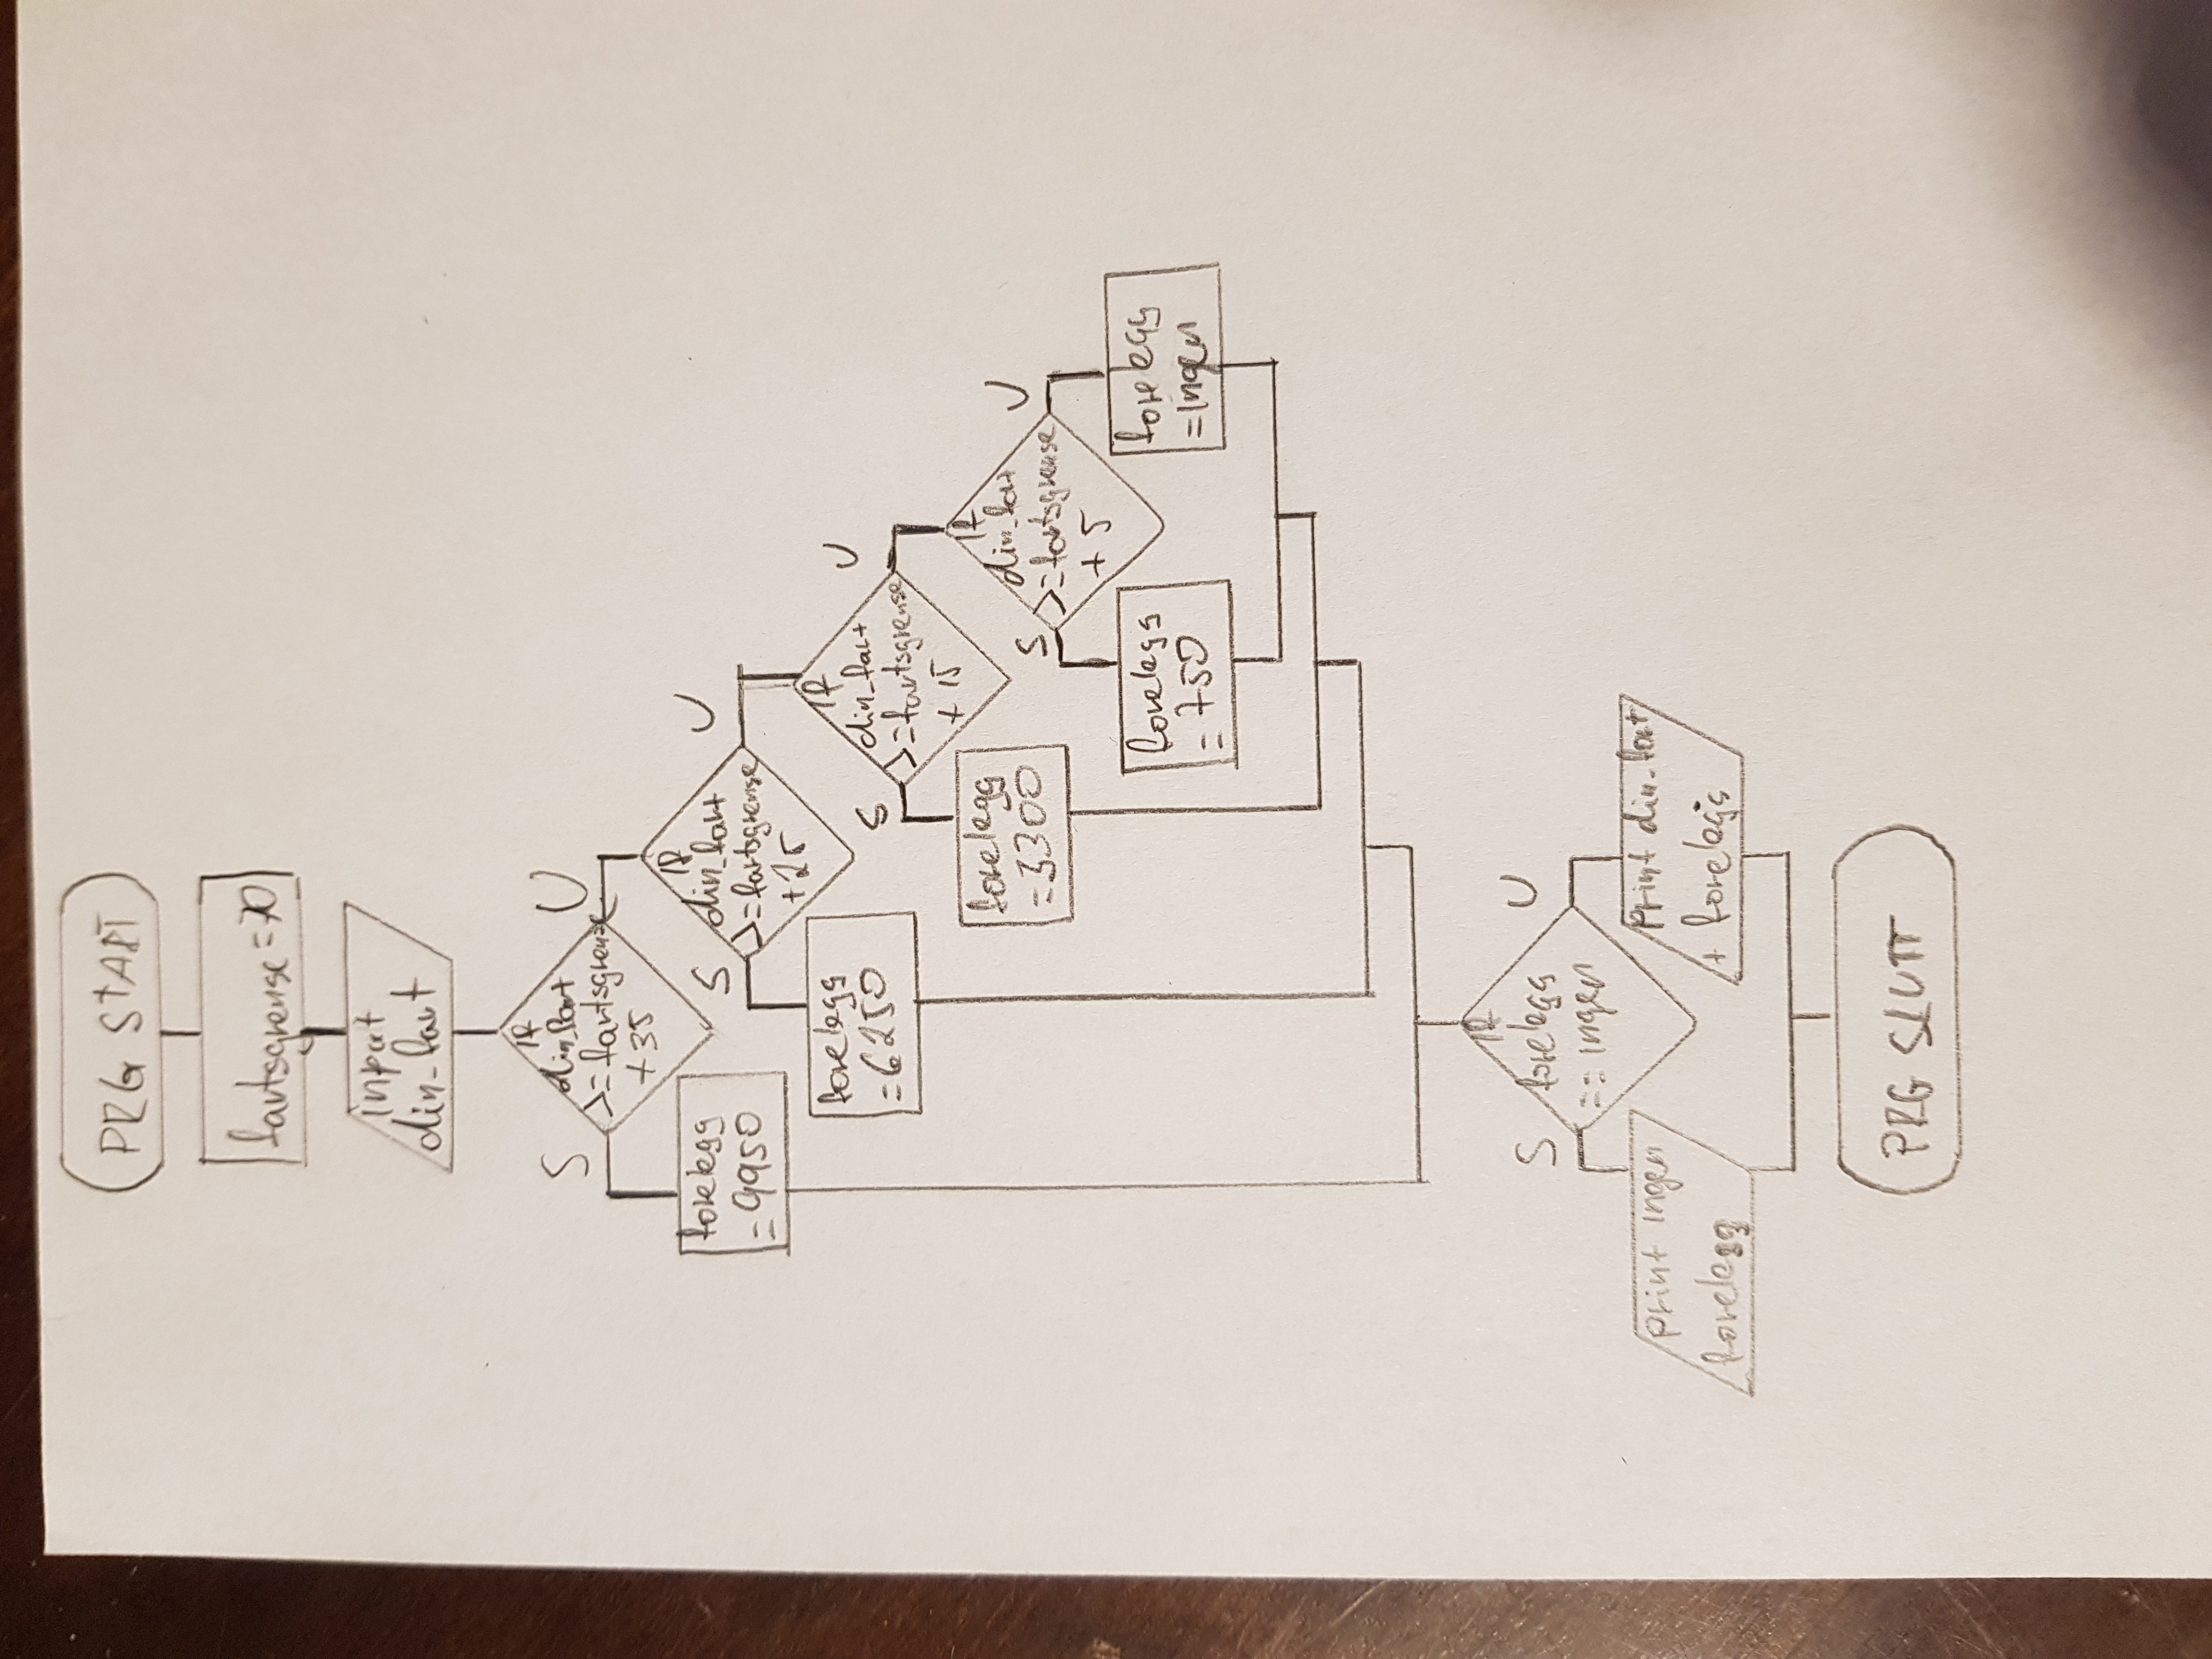 PRG START
fartsgrense = 70
input
din_fart
If
din_fart
>= fartsgrense
+ 35
S
U
forelegg
= 9950
If
din_fart
>= fartsgrense
+ 25
S
U
forelegg
= 6250
If
din_fart
>= fartsgrense
+ 15
S
U
forelegg
= 3300
If
din_fart
>= fartsgrense
+ 5
S
U
forelegg
= 750
forelegg
= ingen
If
forelegg
== ingen
S
U
print ingen
forelegg
print din_fart
+ forelegg
PRG SLUTT